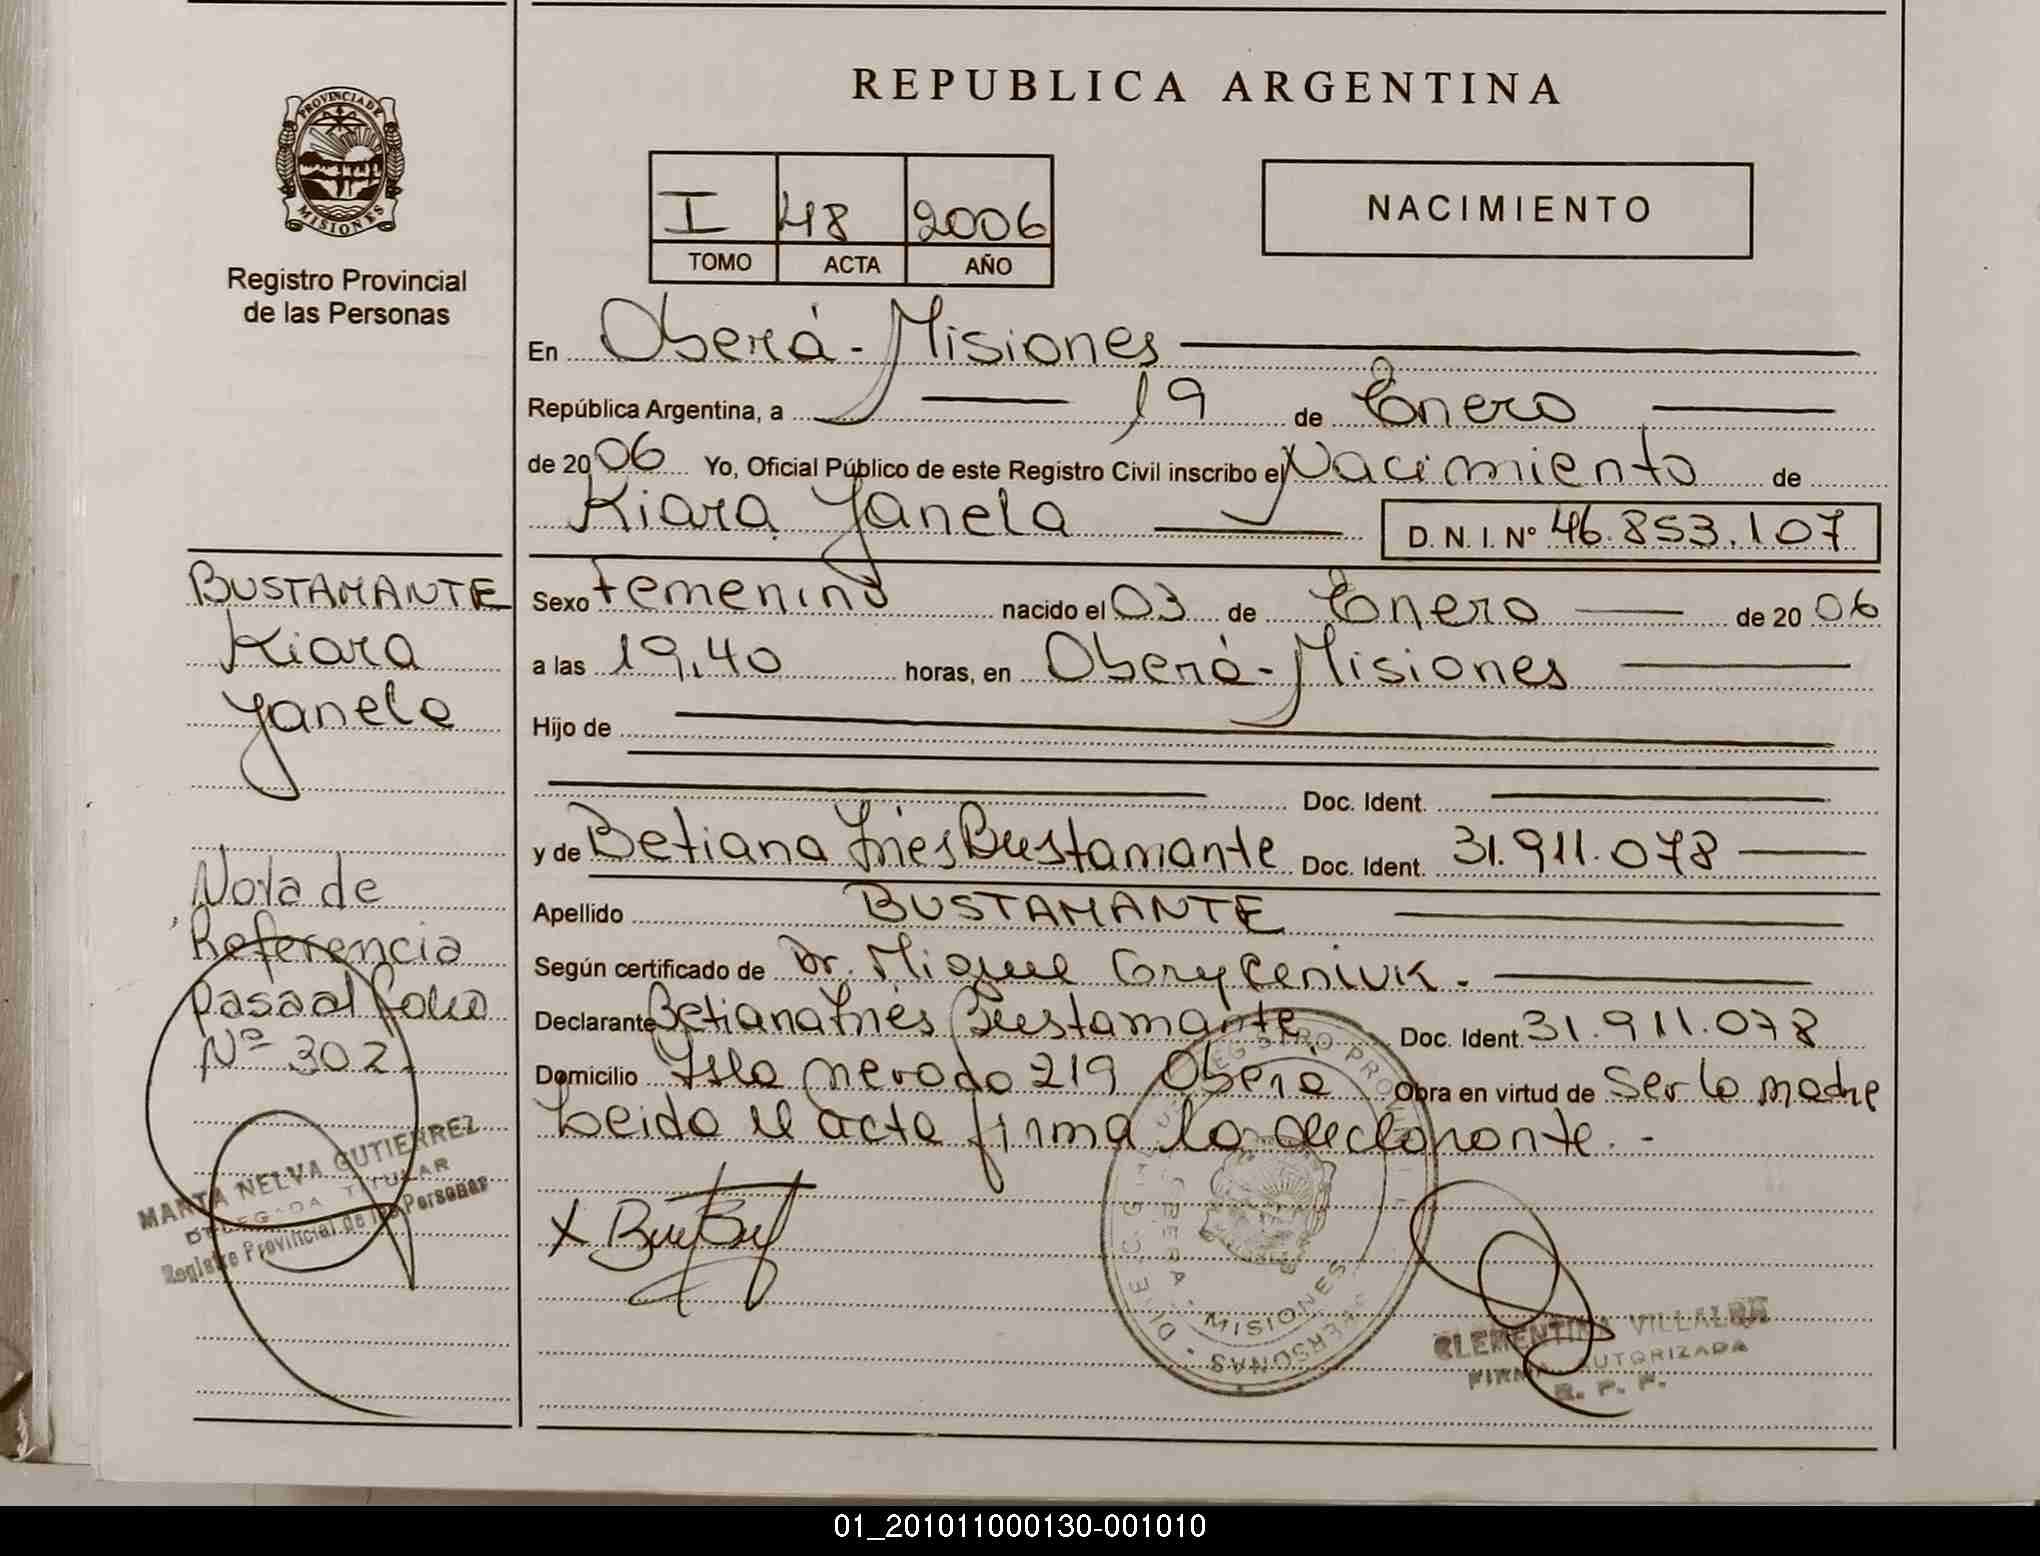 REPUBLICA ARGENTINA
PROVINCIA DE MISIONES
Registro Provincial
de las Personas
I 48 2006
TOMO ACTA AÑO
NACIMIENTO
En Oberá - Misiones
República Argentina, a 19 de Enero
de 2006 Yo, Oficial Público de este Registro Civil inscribo el Nacimiento de
Kiara Yanela D. N. I. Nº 46.853.107
BUSTAMANTE
Kiara
Yanela
Nota de
Referencia
Pasa al folio
Nº 302
MARTA NELVA GUTIERREZ
DELEGADA TITULAR
Registro Provincial de las Personas
Sexo Femenino nacido el 03 de Enero de 2006
a las 19,40 horas, en Oberá - Misiones
Hijo de
Doc. Ident.
y de Betiana Inés Bustamante Doc. Ident. 31.911.078
Apellido BUSTAMANTE
Según certificado de Dr. Miguel
Declarante Betiana Inés Bustamante Doc. Ident. 31.911.078
Domicilio Isla nevado 219 Oberá Obra en virtud de Ser la madre
Leido el acta firma la declarante. -
X
REGISTRO PROVINCIAL PERSONAS
MISIONES
CLEMENTINA VILLALBA
FIRMA AUTORIZADA
R. P. P.
01_201011000130-001010